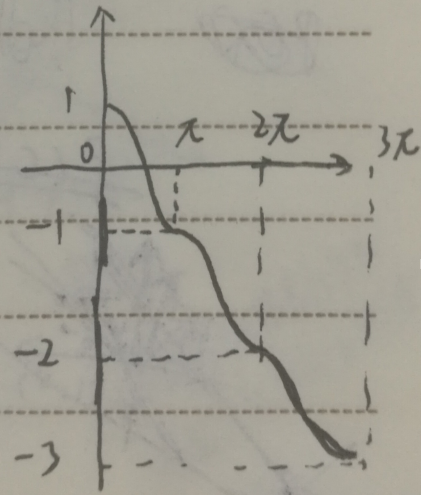 1
π 2π 3π
0
-1
-2
-3